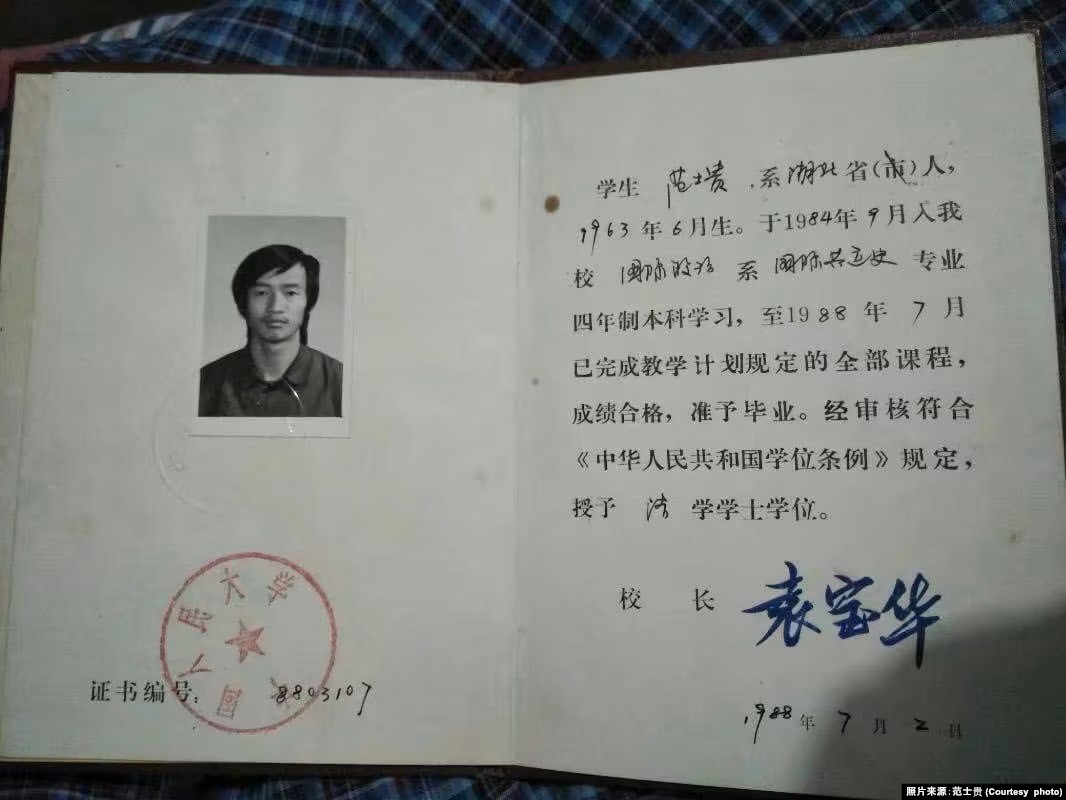 中国人民大学
证书编号：8803107
学生 范士贵，系湖北省(市)人，
1963年6月生。于1984年9月入我
校 国际政治 系 国际共运史 专业
四年制本科学习，至1988年7月
已完成教学计划规定的全部课程，
成绩合格，准予毕业。经审核符合
《中华人民共和国学位条例》规定，
授予 法 学学士学位。
校 长 袁宝华
1988年7月2日
照片来源：范士贵 (Courtesy photo)